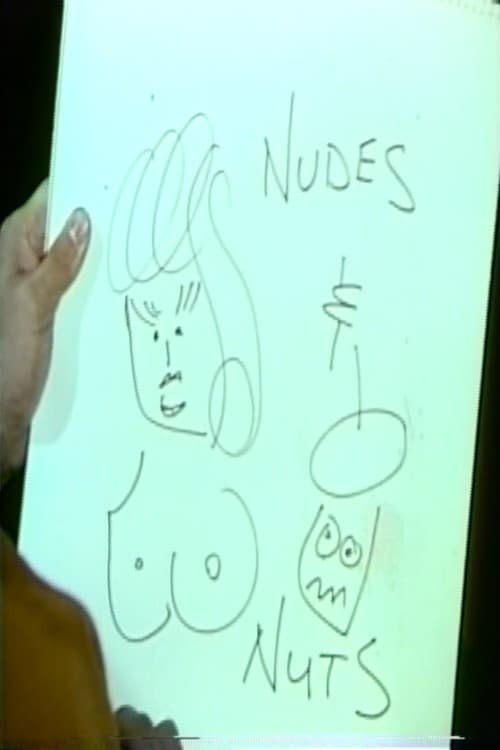 NUDES
&
NUTS